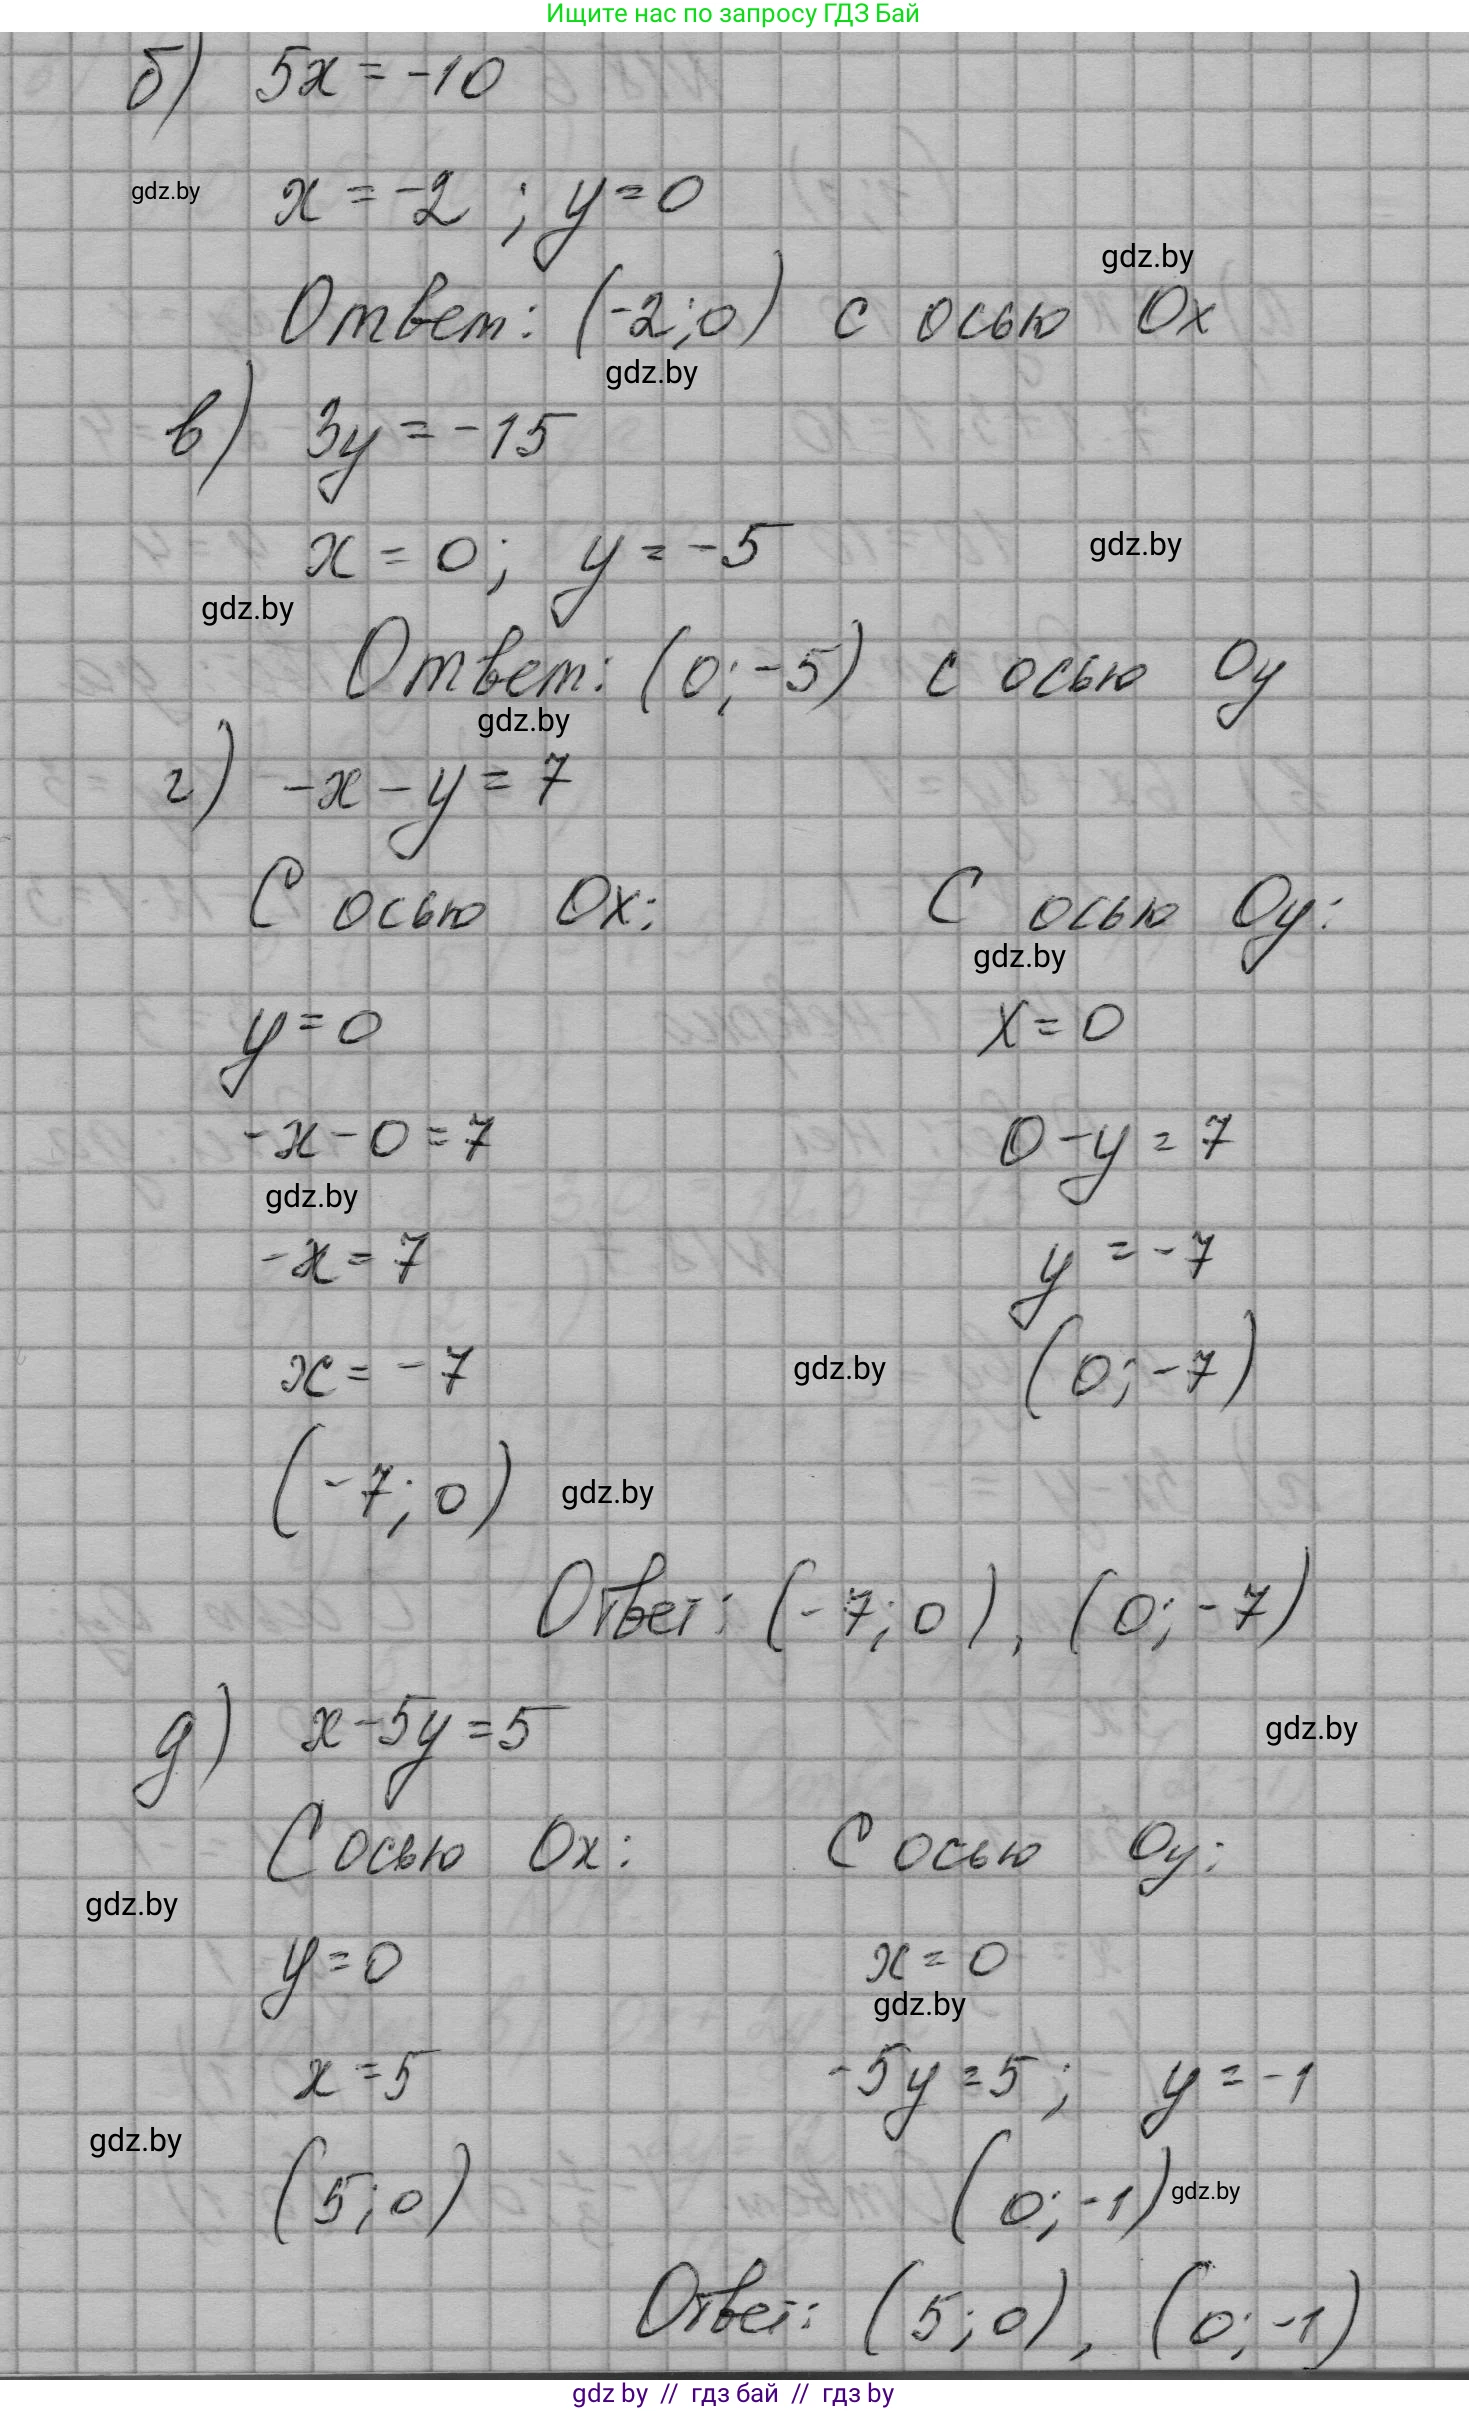 Ищите нас по запросу ГДЗ Бай
б) 5x = -10
gdz.by x = -2 ; y = 0
gdz.by
Ответ: (-2; 0) с осью Ox
gdz.by
в) 3y = -15
x = 0; y = -5 gdz.by
gdz.by
Ответ: (0; -5) с осью Oy
gdz.by
г) -x - y = 7
С осью Ox: С осью Oy:
gdz.by
y = 0 x = 0
-x - 0 = 7 0 - y = 7
gdz.by
-x = 7 y = -7
x = -7 gdz.by (0; -7)
(-7; 0) gdz.by
Ответ: (-7; 0), (0; -7)
д) x - 5y = 5 gdz.by
С осью Ox: С осью Oy:
gdz.by
y = 0 x = 0
gdz.by
x = 5 -5y = 5; y = -1
gdz.by
(5; 0) (0; -1) gdz.by
Ответ: (5; 0), (0; -1)
gdz by // гдз бай // гдз by